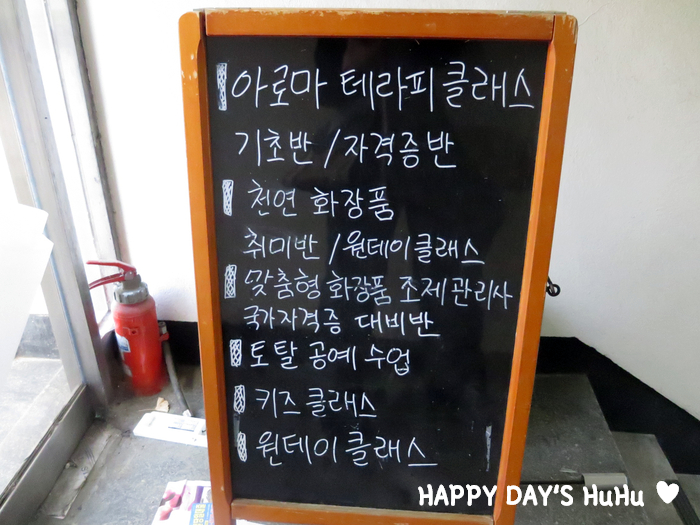 아로마 테라피 클래스
기초반 / 자격증반
천연 화장품
취미반 / 원데이클래스
맞춤형 화장품 조제관리사
국가자격증 대비반
토탈 공예 수업
키즈 클래스
원데이 클래스
HAPPY DAY'S HuHu ♥